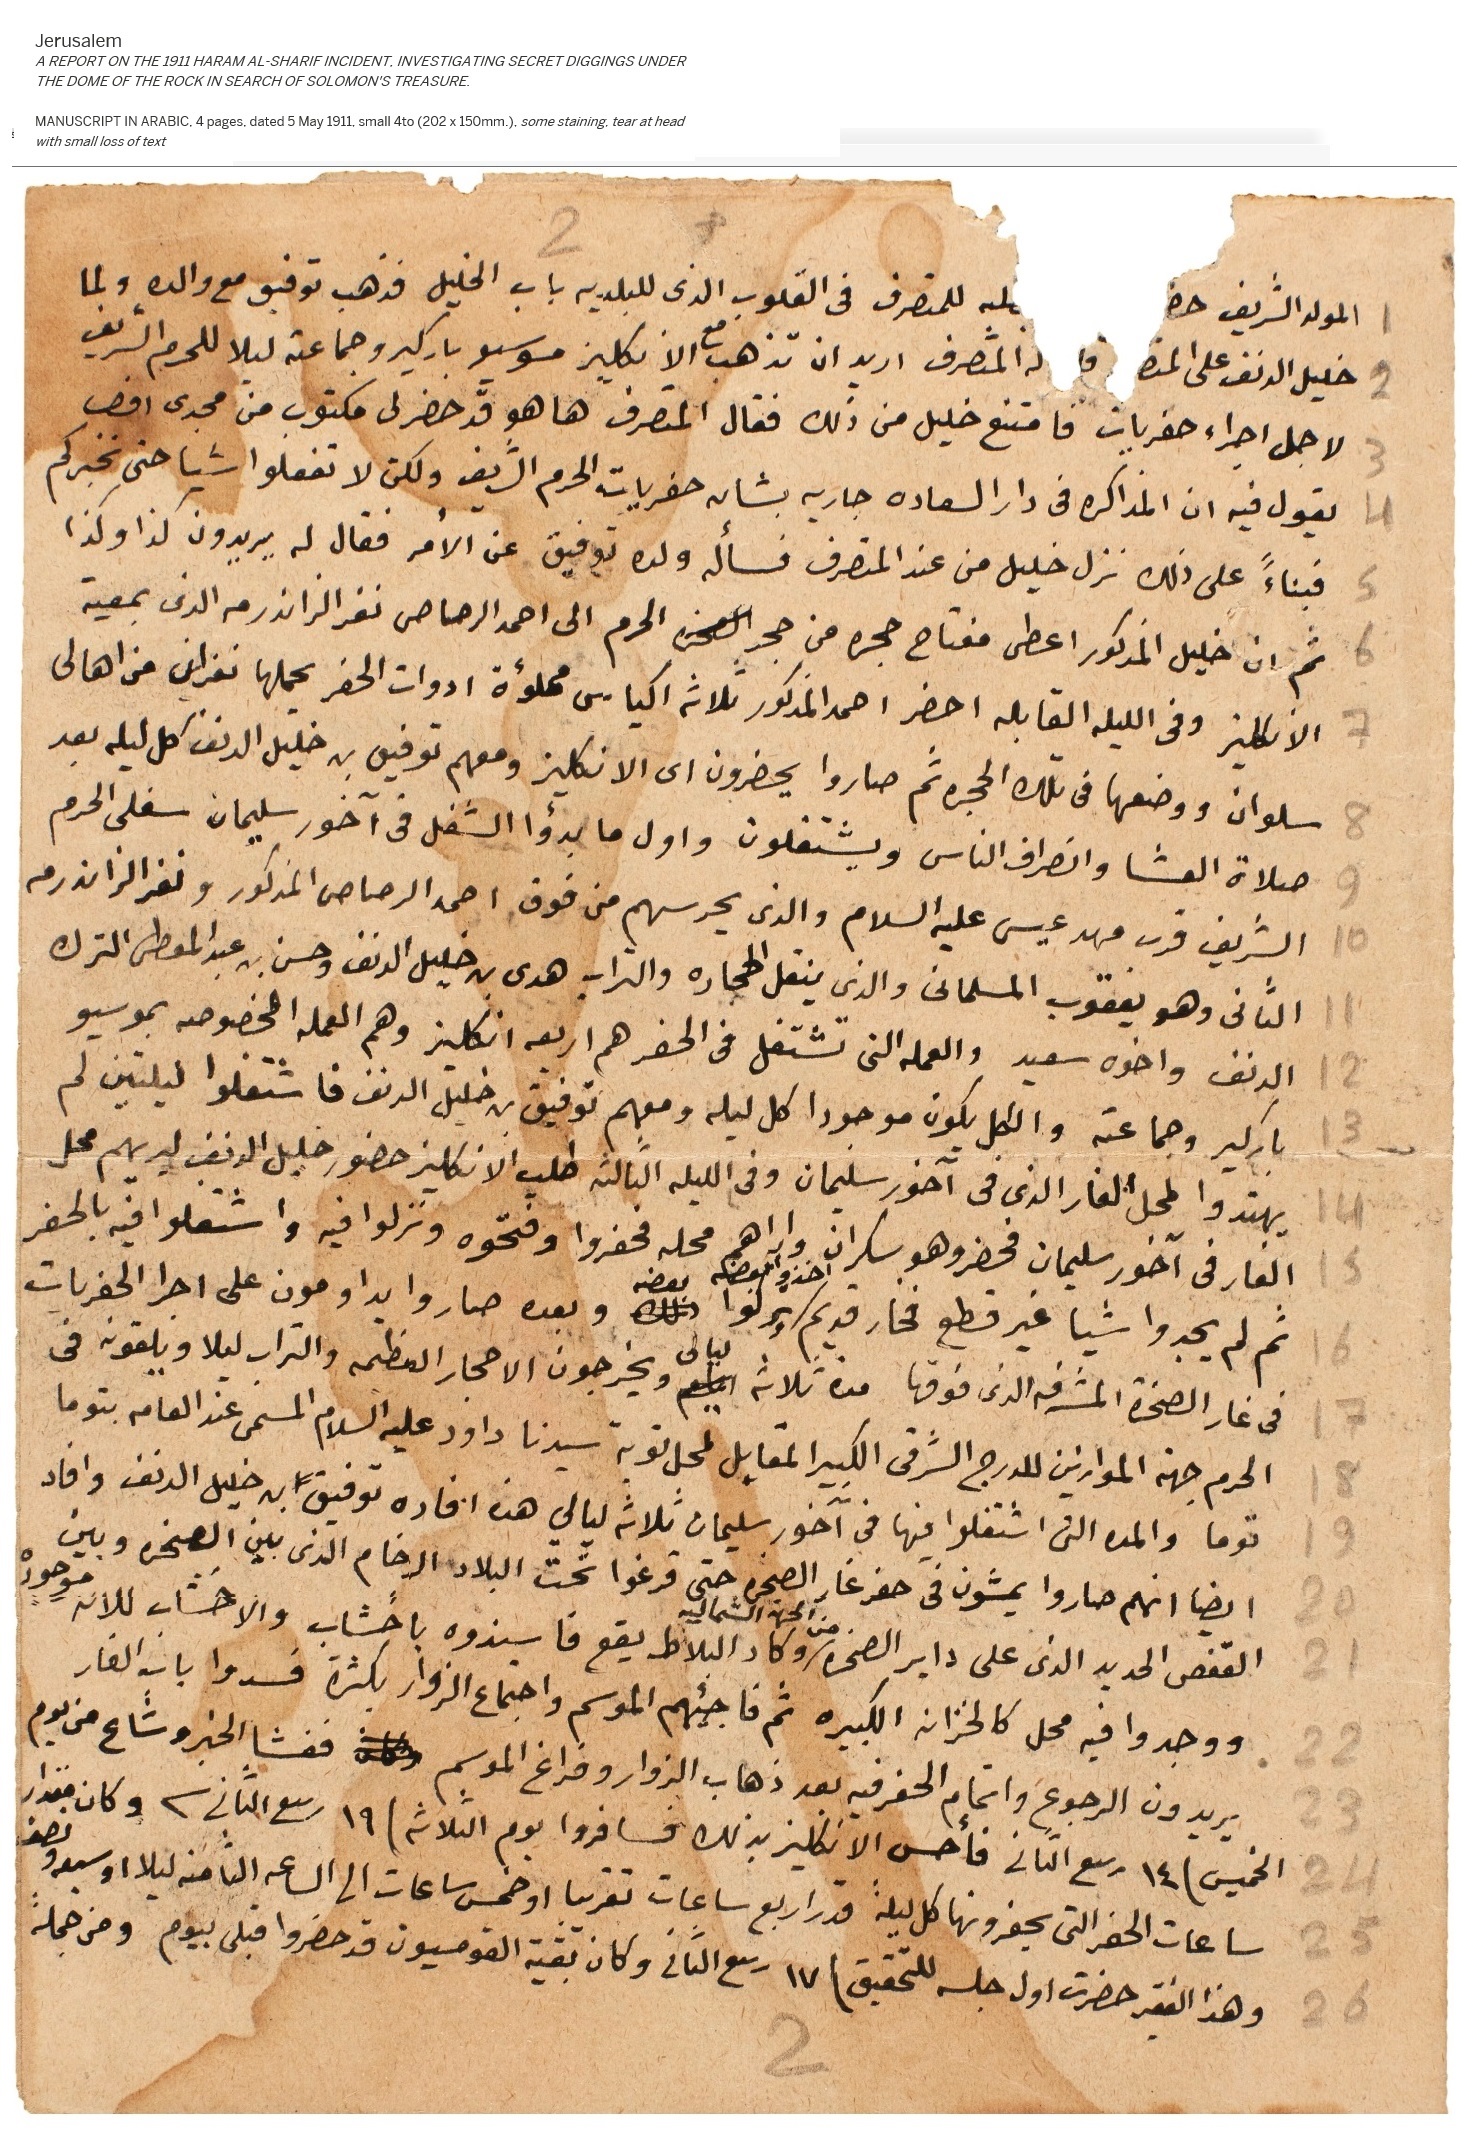 Jerusalem
A REPORT ON THE 1911 HARAM AL-SHARIF INCIDENT, INVESTIGATING SECRET DIGGINGS UNDER
THE DOME OF THE ROCK IN SEARCH OF SOLOMON'S TREASURE.
MANUSCRIPT IN ARABIC, 4 pages, dated 5 May 1911, small 4to (202 x 150mm.), some staining, tear at head
with small loss of text
2
1 المولد الشريف للمتصرف فى القلوب الذى للبلديه باب الخليل فذهب توفيق مع والده ولما
2 خليل الدنف على المتصرف اريد ان تذهب مع الانكليز موسيو باركير وجماعته ليلا للحرم الشريف
3 لاجل اجراء حفريات فامتنع خليل من ذلك فقال المتصرف هاهو قد حضر لى مكتوب من مجدى افندى
4 يقول فيه ان المذاكره فى دار السعاده جاريه بشان حفريات الحرم الشريف ولكن لا تفعلوا شيا حتى نخبركم
5 فبناءً على ذلك نزل خليل من عند المتصرف فسأله ولده توفيق عن الأمر فقال له يريدون كذا وكذا
6 ثم ان خليل المذكور اعطى مفتاح حجره من حجر الصخره الحرم الى احمد الرصاص نفر الزاندرمه الذى بمعية
7 الانكليز وفى الليله القابله احضر احمد المذكور ثلاثه اكياس مملوأة ادوات الحفر يحملها نفران من اهالى
8 سلوان ووضعها فى تلك الحجره ثم صاروا يحضرون اى الانكليز ومعهم توفيق بن خليل الدنف كل ليله بعد
9 صلاة العشا وانصراف الناس ويشتغلون واول ما بدؤا الشغل فى آخور سليمان سفلى الحرم
10 الشريف قرب مهد عيسى عليه السلام والذى يحرسهم من فوق احمد الرصاص المذكور ونفر الزاندرمه
11 الثانى وهو يعقوب المسلمانى والذى ينقل الحجاره والتراب هدى بن خليل الدنف وحسن بن عبد المعطى الترك
12 الدنف واخوه سعيد والعمله التى تشتغل فى الحفر هم اربعه انكليز وهم العمله المخصوصه بموسيو
13 باركير وجماعته والكل يكون موجودا كل ليله ومعهم توفيق بن خليل الدنف فاشتغلوا ليلتين لم
14 يهتدوا لمحل الغار الذى فى آخور سليمان وفى الليله الثالثه طلب الانكليز حضور خليل الدنف ليريهم محل
15 الغار فى آخور سليمان فحضر وهو سكران واراهم محله فحفروا وفتحوه ونزلوا فيه واشتغلوا فيه بالحفر
16 ثم لم يجدوا شيا غير قطع فخار قديم اخذوا بعضه وتركوا بعضه وبعده صاروا يداومون على اجرا الحفريات
17 فى غار الصخرة المشرفه الذى فوقها مدة ثلاثه ليالى ويخرجون الاحجار العظيمه والتراب ليلا ويلقونه فى
18 الحرم جهة الموازين للدرج الشرقى الكبير المقابل لمحل توبة سيدنا داود عليه السلام المسمى عند العامه بتوما
19 توما والمده التى اشتغلوا فيها فى آخور سليمان ثلاثه ليالي هذه افاده توفيق بن خليل الدنف وافاد
20 ايضا انهم صاروا يمشون فى حفر غار الصخره حتى فرغوا تحت البلاد الرخام الذى بين الصخره وبين
21 القفص الحديد الذى على داير الصخره من الجهة الشماليه وكاد البلاط يقع فاسندوه باخشاب والاخشاب للانه موجودة
22 ووجدوا فيه محل كالخزانه الكبيره ثم فاجئهم الموسم واجتماع الزوار بكثرة فسدوا باب الغار
23 يريدون الرجوع واتمام الحفر فيه بعد ذهاب الزوار وفراغ الموسم ففشا الخبر وشاع من يوم
24 الخميس ١٤ ربيع الثاني فأحس الانكليز بذلك فسافروا يوم الثلاثه ١٩ ربيع الثاني وكان مقدار
25 ساعات الحفر التى يحفرونها كل ليلة قدر اربع ساعات تقريبا او خمس ساعات الى الساعه الثامنه ليلا او سبعه ونصف
26 وهذا الفقير حضرت اول جلسه للتحقيق ١٧ ربيع الثانى وكان بقية القومسيون قد حضروا قبلى بيوم ومن جملة
2